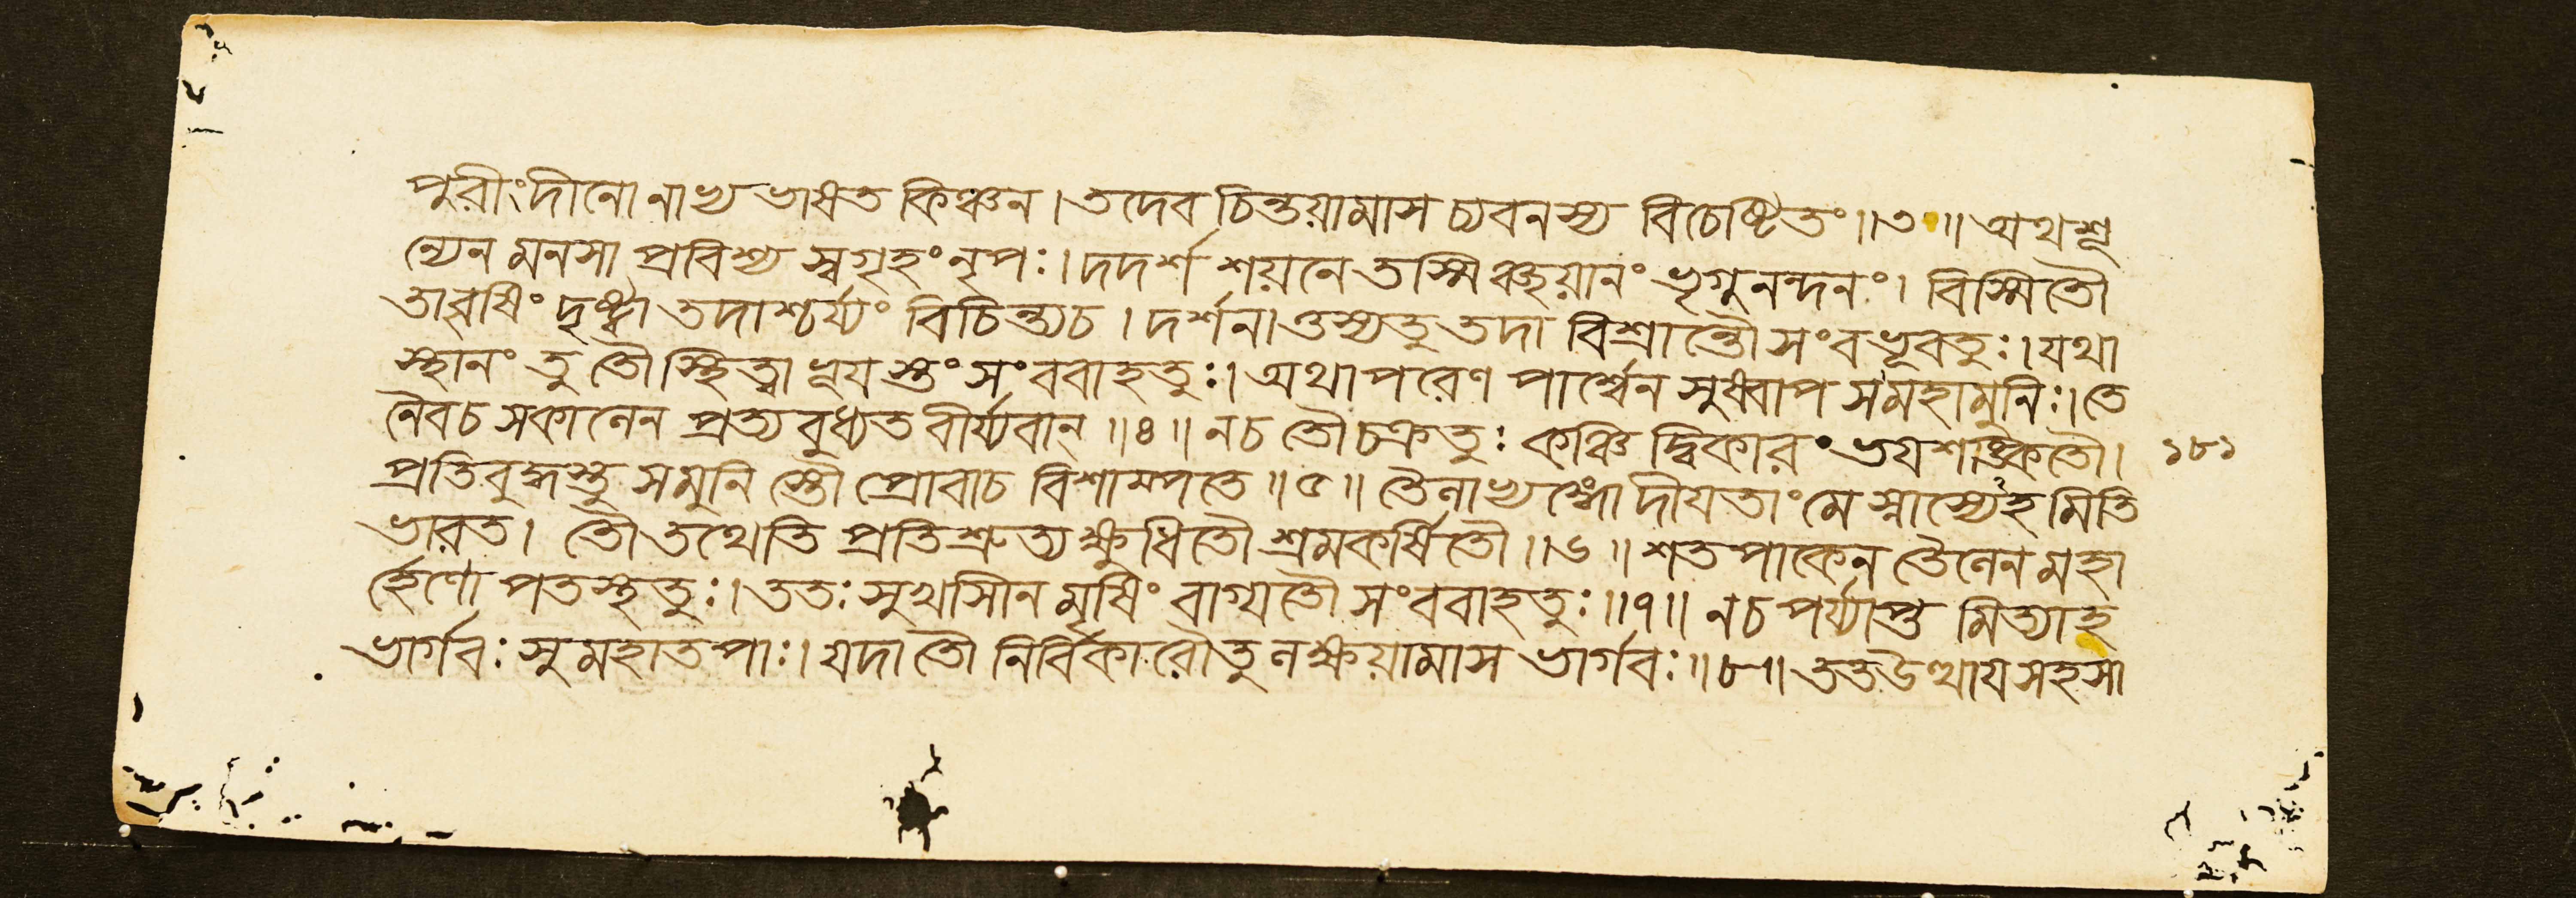 পুরীং দীনো নাভ্য ভাষত কিঞ্চন । তদেব চিন্তয়ামাস চ্যবনস্য বিচেষ্টিতং ॥ ৩ ॥ অথ শূ
ন্যেন মনসা প্রবিশ্য স্বগৃহং নৃপঃ । দদর্শ শয়নে তস্মিঞ্ছয়ানং ভৃগুনন্দনং । বিস্মিতৌ
তাবৃষিং দৃষ্ট্বা তদাশ্চর্য্যং বিচিন্ত্যচ । দর্শনাত্তস্যতু তদা বিশ্রান্তৌ সংবভূবতুঃ । যথা
স্থানং তু তৌ স্থিত্বা ভূয স্তং সংববাহতুঃ । অথাপরেণ পার্শ্বেন সুষ্বাপ স মহামুনিঃ । তে
নৈবচ সকালেন প্রত্য বুধ্যত বীর্য্যবান্ ॥ ৪ ॥ নচ তৌ চক্রতুঃ কঞ্চি দ্বিকারং ভয শঙ্কিতৌ । ১৮১
প্রতিবুদ্ধস্তু সমুনি স্তৌ প্রোবাচ বিশাম্পতে ॥ ৫ ॥ তৈলাভ্যঙ্গো দীযতাং মে স্নাস্যেহ মিতি
ভারত । তৌ তথেতি প্রতিশ্রুত্য ক্ষুধিতৌ শ্রমকর্ষিতৌ ॥ ৬ ॥ শতপাকেন তৈলেন মহা
র্হেণো পতস্থতুঃ । ততঃ সুখাসীন মৃষিং বাগ্যতৌ সংববাহতুঃ ॥ ৭ ॥ নচ পর্য্যাপ্ত মিত্যাহ
ভার্গবঃ সুমহাতপাঃ । যদা তৌ নির্বিকারৌতু লক্ষয়ামাস ভার্গবঃ ॥ ৮ ॥ তত উত্থায সহসা